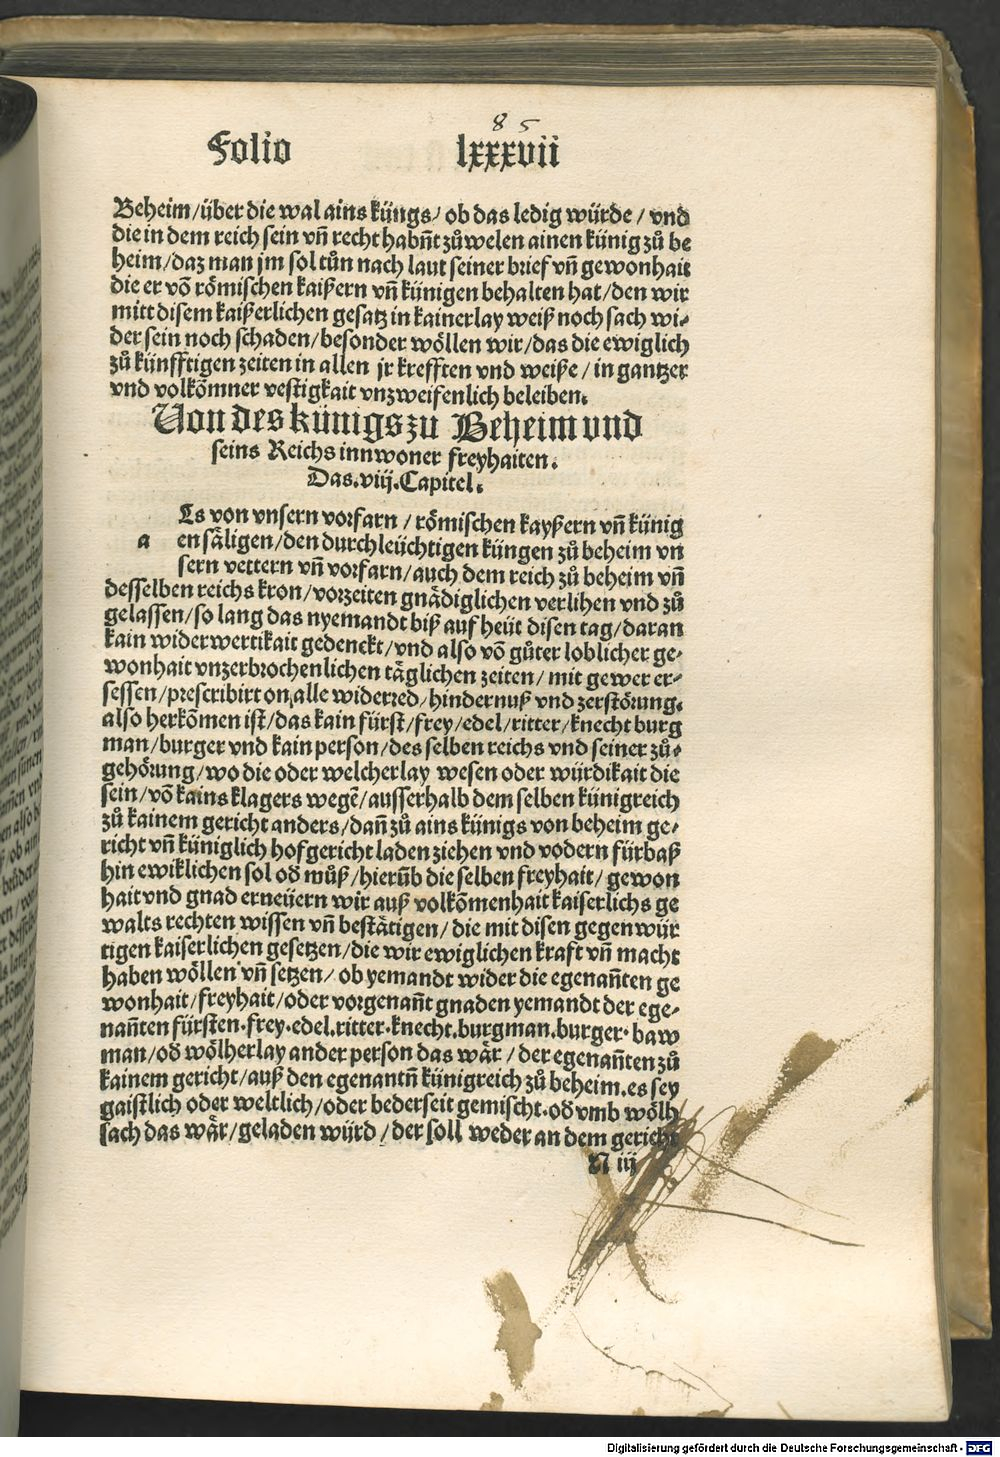 85
Folio lxxxvii
Beheim/über die wal ains küngs/ ob das ledig würde / vnd
die in dem reich sein vñ recht habñt zůwelen ainen künig zů be
heim/daz man jm sol tůn nach laut seiner brief vñ gewonhait
die er võ römischen kaißern vñ künigen behalten hat/den wir
mitt disem kaißerlichen gesatz in kainerlay weiß noch sach wi⸗
der sein noch schaden/besonder wöllen wir/das die ewiglich
zů künfftigen zeiten in allen jr krefften vnd weiße/in gantzer
vnd volkõmner vestigkait vnzweifenlich beleiben.
Von des künigs zu Beheim vnd
seins Reichs innwoner freyhaiten.
Das.viij.Capitel.
Es von vnsern vorfarn / römischen kayßern vñ künig
a en säligen/den durchleüchtigen küngen zů beheim vn
sern vettern vñ vorfarn/auch dem reich zů beheim vñ
desselben reichs kron/vorzeiten gnädiglichen verlihen vnd zů
gelassen/so lang das nyemandt biß auf heüt disen tag/daran
kain widerwertikait gedenckt/vnd also võ gůter loblicher ge⸗
wonhait vnzerbrochenlichen täglichen zeiten/mit gewer er⸗
sessen/prescribirt on alle widerred/hindernuß vnd zerstörung.
also herkõmen ist/das kain fürst/frey/edel/ritter/knecht burg
man/burger vnd kain person/des selben reichs vnd seiner zů⸗
gehörung/wo die oder welcherlay wesen oder würdikait die
sein/võ kains klagers wegẽ/ausserhalb dem selben künigreich
zů kainem gericht anders/dañ zů ains künigs von beheim ge⸗
richt vñ küniglich hofgericht laden ziehen vnd vodern fürbaß
hin ewiklichen sol od můß/hierũb die selben freyhait/gewon
hait vnd gnad erneüern wir auß volkõmenhait kaiserlichs ge
walts rechten wissen vñ bestätigen/die mit disen gegen wür
tigen kaiserlichen gesetzen/die wir ewiglichen kraft vñ macht
haben wöllen vñ setzen/ob yemandt wider die egenañten ge
wonhait/freyhait/oder vorgenañt gnaden yemandt der ege⸗
nañten fürsten.frey.edel.ritter.knecht.burgman.burger.baw
man/od wölherlay ander person das wär/der egenañten zů
kainem gericht/auß den egenantñ künigreich zů beheim.es sey
gaistlich oder weltlich/oder bederseit gemischt.od vmb wölh
sach das wär/geladen würd/der soll weder an dem gericht
N iij
Digitalisierung gefördert durch die Deutsche Forschungsgemeinschaft - DFG